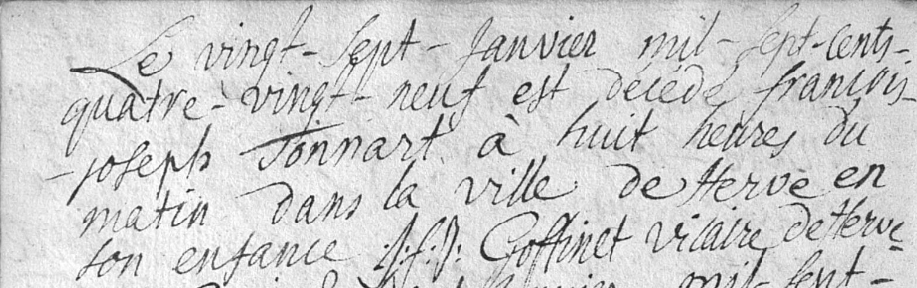 Le vingt-sept-janvier mil-sept-cents-
quatre-vingt-neuf est decedé francois-
-joseph Tonnart à huit heures du
matin dans la ville de Herve en
son enfance J: f: J: Goffinet vicaire de Herve
janvier mil-sept-